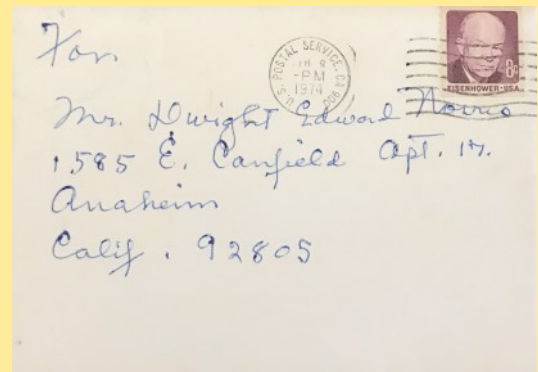 For
U.S. POSTAL SERVICE, CA
PM
1974
8¢
EISENHOWER·USA
Mr. Dwight Edward Norris
1585 E. Canfield Apt.
Anaheim
Calif. 92805